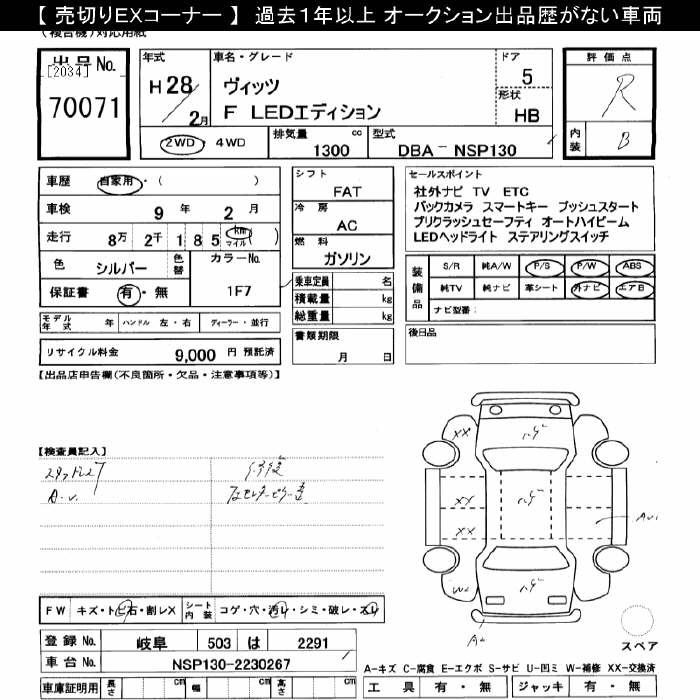 【 売切りEXコーナー 】 過去1年以上 オークション出品歴がない車両
(複合機)対応用紙
出品No.
[2034]
70071
年式
H28
2月
車名・グレード
ヴィッツ
F LEDエディション
ドア
5
形状
HB
2WD・4WD
排気量
cc
1300
型式
DBA－NSP130
評価点
R
内装
B
車歴 自家用・( )
車検 9年 2月
走行 8万 2千 185 km マイル ( )
色 シルバー 色替 カラーNo. 1F7
保証書 有・無
モデル年式 年 ハンドル 左・右 ディーラー・並行
リサイクル料金 9,000 円 預託済
シフト
FAT
冷房
AC
燃料
ガソリン
乗車定員 名
積載量 kg
総重量 kg
書類期限
月 日
セールスポイント
社外ナビ TV ETC
バックカメラ スマートキー プッシュスタート
プリクラッシュセーフティ オートハイビーム
LEDヘッドライト ステアリングスイッチ
装備品
S/R 純A/W P/S P/W ABS
純TV 純ナビ 革シート 外ナビ エアB
ナビ型番:
後日品
【出品店申告欄(不良箇所・欠品・注意事項等)】
【検査員記入】
修復
XX
XX
XX
W2
A1
FW キズ・トビ石・割レX シート内装 コゲ・穴・汚レ・シミ・破レ・スレ
登録No. 岐阜 503 は 2291
車台No. NSP130-2230267
車庫証明用 長さ cm 幅 cm 高さ cm
スペア
A-キズ C-腐食 E-エクボ S-サビ U-凹ミ W-補修 XX-交換済
工具 有・無 ジャッキ 有・無